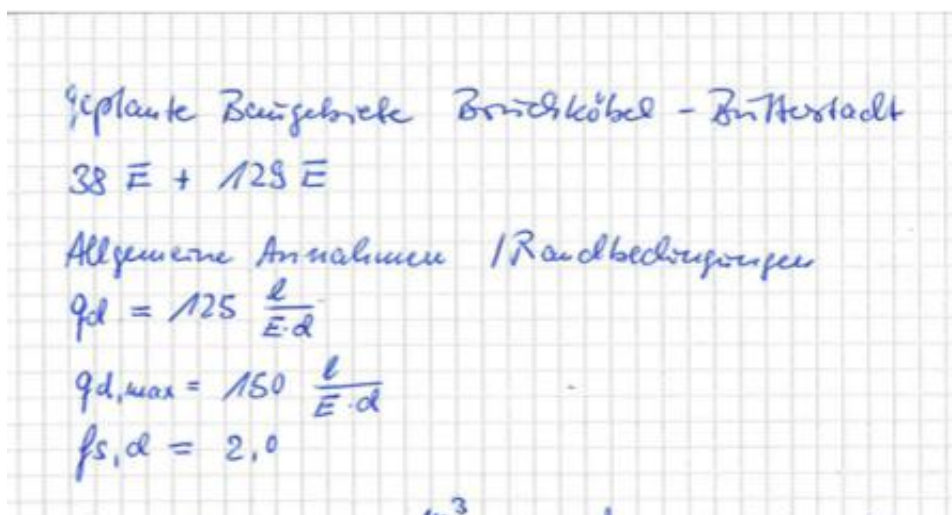 Geplante Baugebiete Bruchköbel - Butterstadt
38 E + 129 E
Allgemeine Annahmen / Randbedingungen
qd = 125 l/E·d
qd,max = 150 l/E·d
fs,d = 2,0